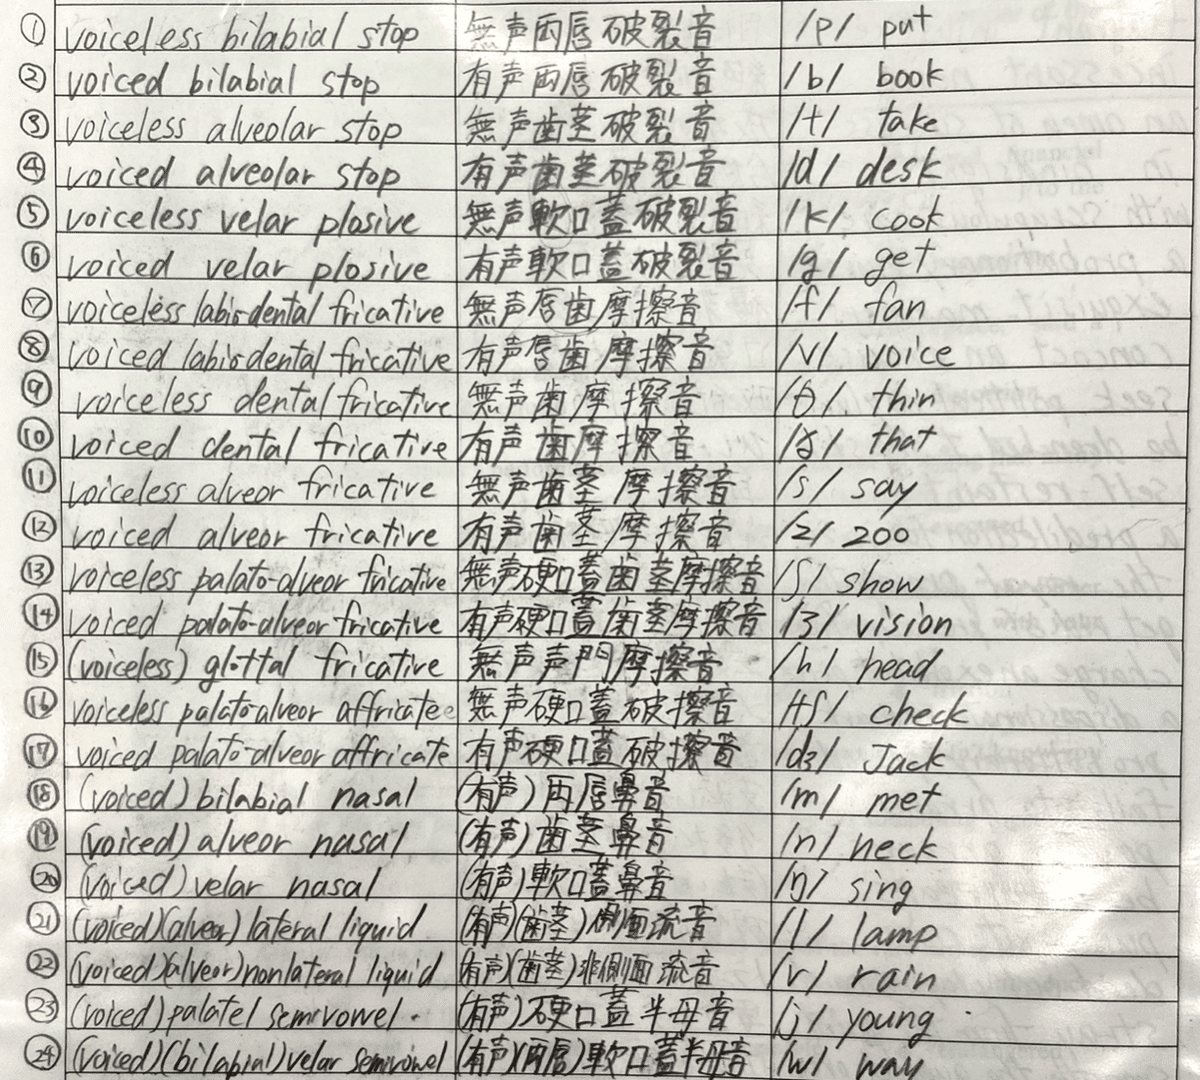 ① voiceless bilabial stop 無声両唇破裂音 /p/ put
② voiced bilabial stop 有声両唇破裂音 /b/ book
③ voiceless alveolar stop 無声歯茎破裂音 /t/ take
④ voiced alveolar stop 有声歯茎破裂音 /d/ desk
⑤ voiceless velar plosive 無声軟口蓋破裂音 /k/ cook
⑥ voiced velar plosive 有声軟口蓋破裂音 /g/ get
⑦ voiceless labiodental fricative 無声唇歯摩擦音 /f/ fan
⑧ voiced labiodental fricative 有声唇歯摩擦音 /v/ voice
⑨ voiceless dental fricative 無声歯摩擦音 /θ/ thin
⑩ voiced dental fricative 有声歯摩擦音 /ð/ that
⑪ voiceless alveor fricative 無声歯茎摩擦音 /s/ say
⑫ voiced alveor fricative 有声歯茎摩擦音 /z/ zoo
⑬ voiceless palato-alveor fricative 無声硬口蓋歯茎摩擦音 /ʃ/ show
⑭ voiced palato-alveor fricative 有声硬口蓋歯茎摩擦音 /ʒ/ vision
⑮ (voiceless) glottal fricative 無声声門摩擦音 /h/ head
⑯ voiceless palato-alveor affricatee 無声硬口蓋破擦音 /tʃ/ check
⑰ voiced palato-alveor affricate 有声硬口蓋破擦音 /dʒ/ Jack
⑱ (voiced) bilabial nasal (有声)両唇鼻音 /m/ met
⑲ (voiced) alveor nasal (有声)歯茎鼻音 /n/ neck
⑳ (voiced) velar nasal (有声)軟口蓋鼻音 /ŋ/ sing
㉑ (voiced)(alveor) lateral liquid (有声)(歯茎)側面流音 /l/ lamp
㉒ (voiced)(alveor) nonlateral liquid (有声)(歯茎)非側面流音 /r/ rain
㉓ (voiced) palatel semivowel. (有声)硬口蓋半母音 /j/ young
㉔ (voiced)(bilabial) velar semivowel (有声)(両唇)軟口蓋半母音 /w/ way